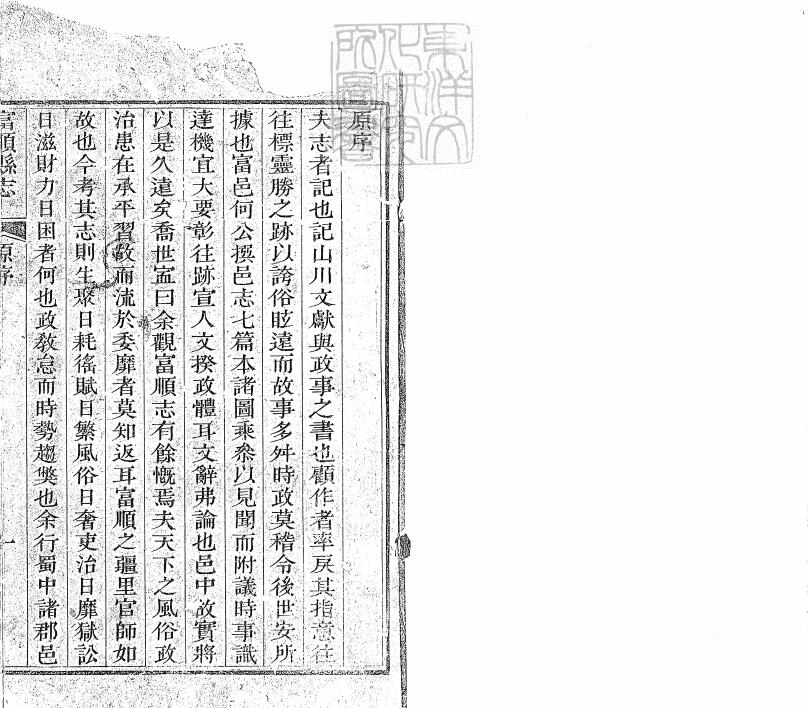 東洋文
化研究
所圖書
原序
夫志者記也記山川文獻與政事之書也顧作者率戾其指意往
往標靈勝之跡以誇俗眩遠而故事多舛時政莫稽令後世安所
據也富邑何公撰邑志七篇本諸圖乘叅以見聞而附議時事識
達機宜大要彰往跡宣人文揆政體耳文辭弗論也邑中故實將
以是久遠矣喬世寍曰余觀富順志有餘慨焉夫天下之風俗政
治患在承平習敝而流於委靡者莫知返耳富順之疆里官師如
故也今考其志則生聚日耗徭賦日繁風俗日奢吏治日靡獄訟
日滋財力日困者何也政敎怠而時勢趨獘也余行蜀中諸郡邑
富順縣志
原序
一